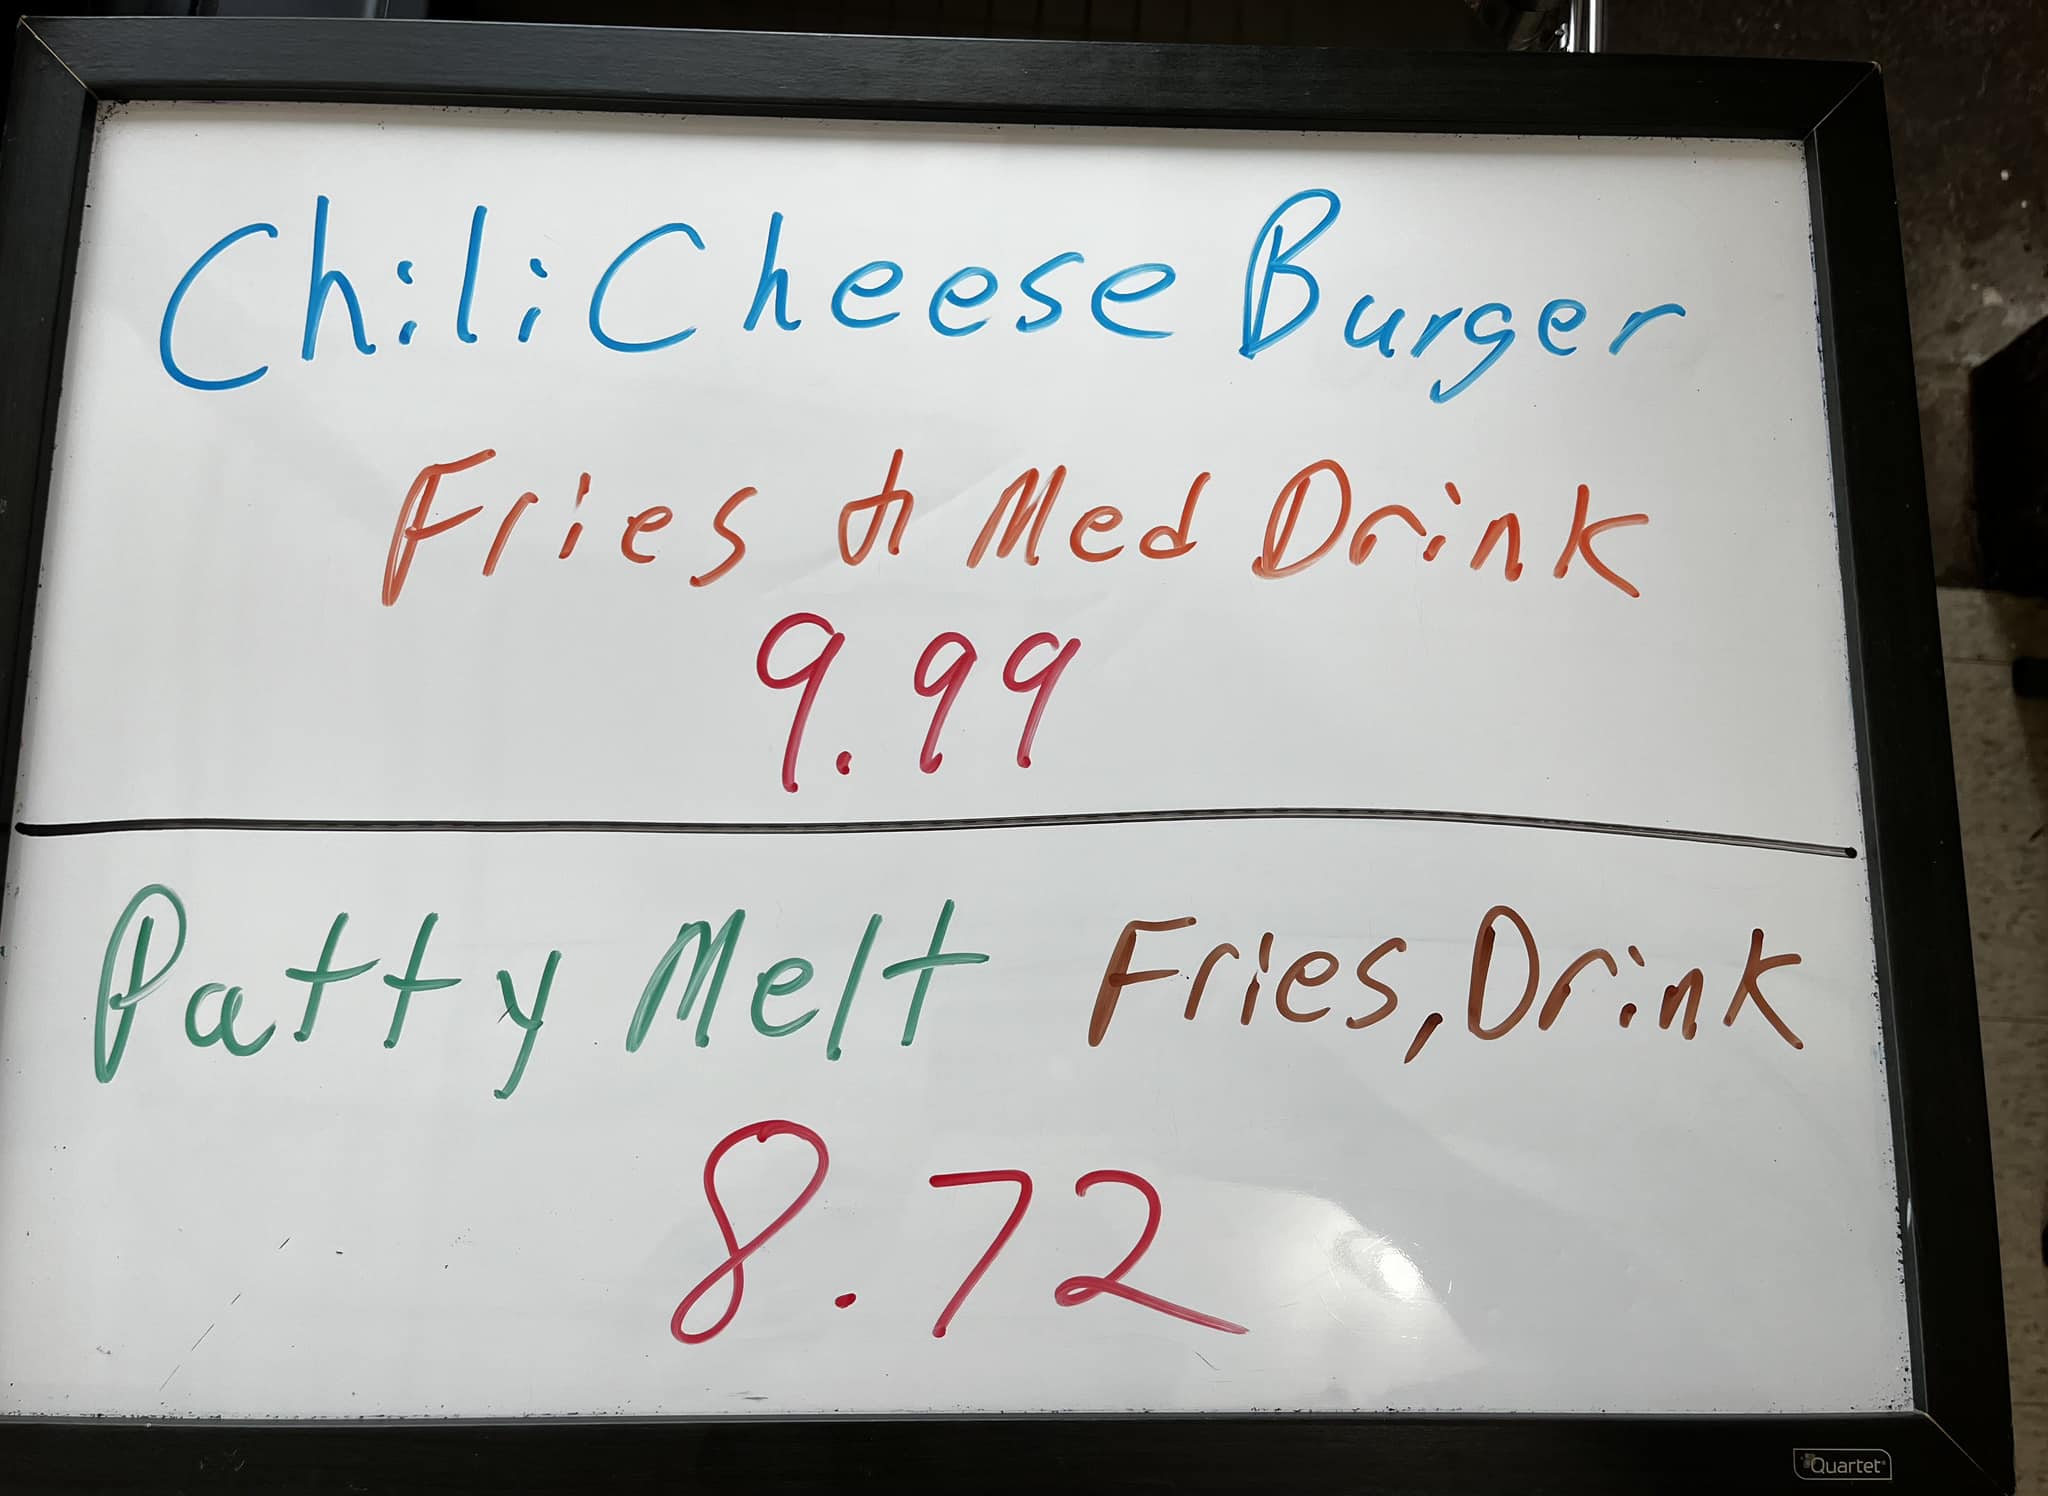 Chili Cheese Burger
Fries & Med Drink
9.99
Patty Melt Fries, Drink
8.72
Quartet